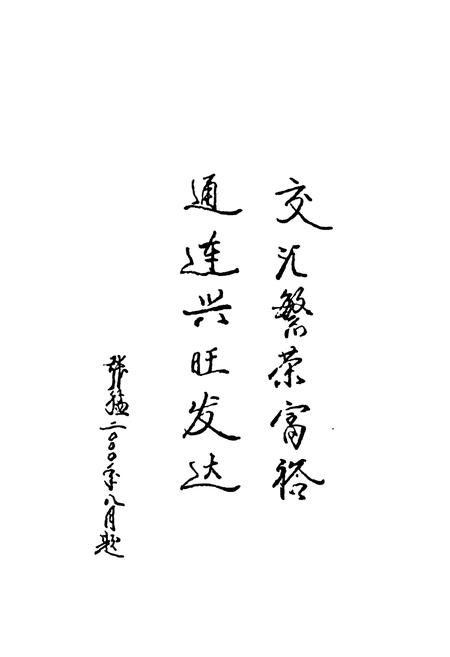 交汇繁荣富裕
通连兴旺发达
张猛二〇〇〇年八月题